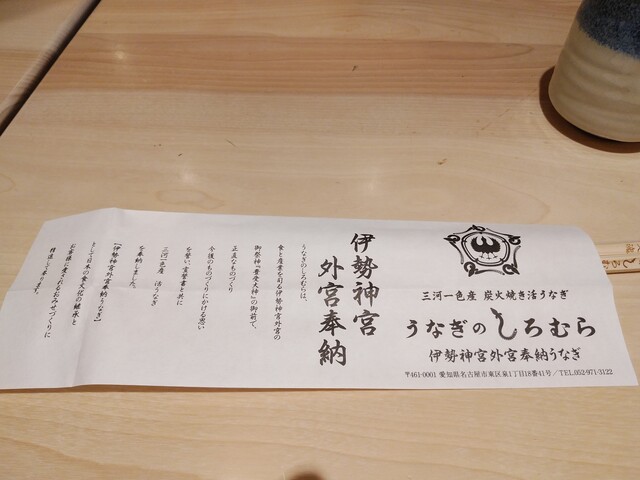 三河一色産 炭火焼き活うなぎ
うなぎのしろむら
伊勢神宮外宮奉納うなぎ
〒461-0001 愛知県名古屋市東区泉1丁目18番41号/TEL.052-971-3122
伊勢神宮
外宮奉納
うなぎのしろむらは、
食と産業を司る伊勢神宮外宮の
御祭神『豊受大神』の御前で、
正直なものづくり
今後のものづくりにかける思い
を誓い、宣誓書と共に
三河一色産 活うなぎ
を奉納しました。
【伊勢神宮外宮奉納うなぎ】
として日本の食文化の継承と
お客様に愛されるおみせづくりに
精進して参ります。